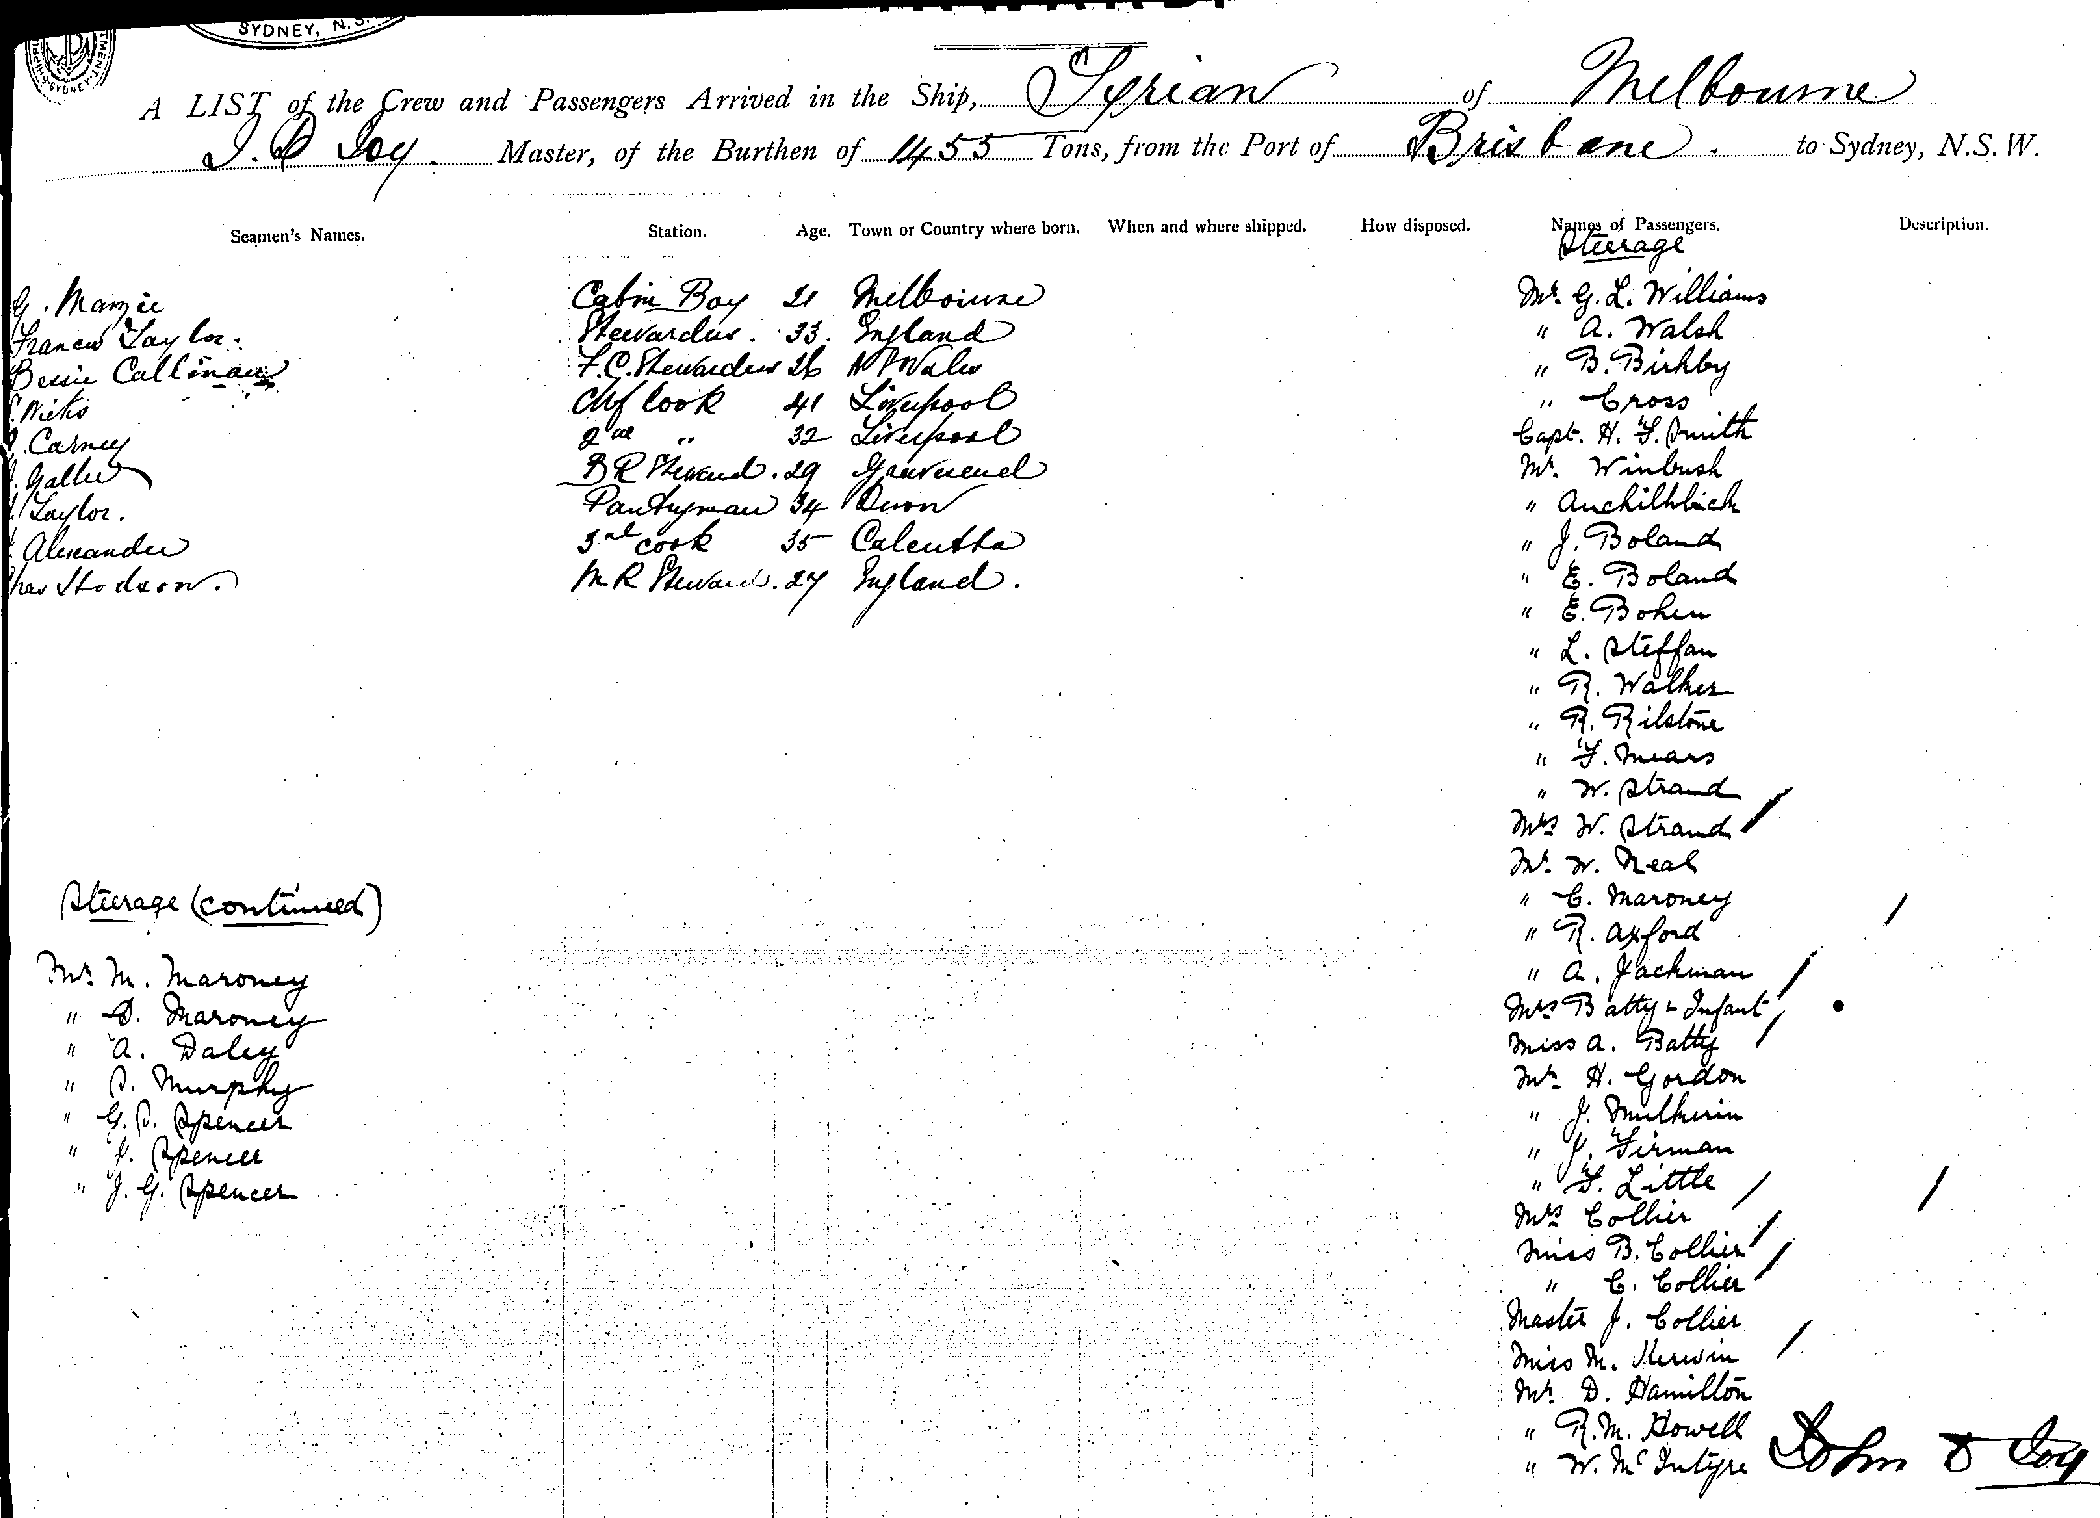 SYDNEY, N.S.
A LIST of the Crew and Passengers Arrived in the Ship, Syrian of Melbourne
J. D Joy. Master, of the Burthen of 1455 Tons, from the Port of Brisbane. to Sydney, N.S.W.
Seamen's Names. Station. Age. Town or Country where born. When and where shipped. How disposed. Names of Passengers. Description.
Steerage
G. Cabin Boy 21 Melbourne Mr. G. L. Williams
Frances Taylor. Stewardess. 33. England " A. Walsh
Bessie Callinan F.C. Stewardess 26 N S Wales " B. Birkby
Chf Cook 41 Liverpool " Cross
Carney 2nd " 32 Liverpool Capt. H. F. Smith
B R Steward. 29 Gravesend Mr. Winbush
Taylor. Pantryman 34 Devon "
Alexander 3rd cook 35 Calcutta " J. Boland
Chas Hodson. M R Steward. 27 England. " E. Boland
" E. Bohen
" L. Steffan
" R. Walker
" R. Rilstone
" F. Mears
" W. Strand
Mrs W. Strand
Mr. W. Neal
" C. Maroney
" R. Axford
" A. Jackman
Mrs Batty & Infant
Miss A. Batty
Mr. H. Gordon
" J. Mulherin
" J. Firman
" F. Little
Mrs Collier
Miss B. Collier
" C. Collier
Master J. Collier
Miss M. Kerwin
Mr. D. Hamilton
" R. M. Howell
" W. McIntyre
John D Joy
Steerage (continued)
Mr. M. Maroney
" D. Maroney
" A. Daley
" S. Murphy
" G. S. Spencer
" J. Spencer
" J. G. Spencer